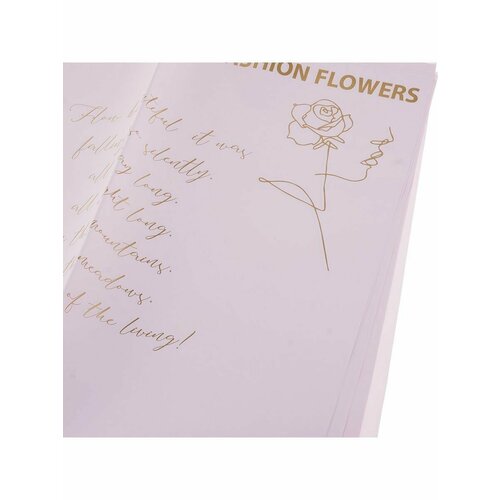 SHION FLOWERS
How teful it was
falli silently.
all ay long.
all ht long.
mountains.
meadows.
of the living!